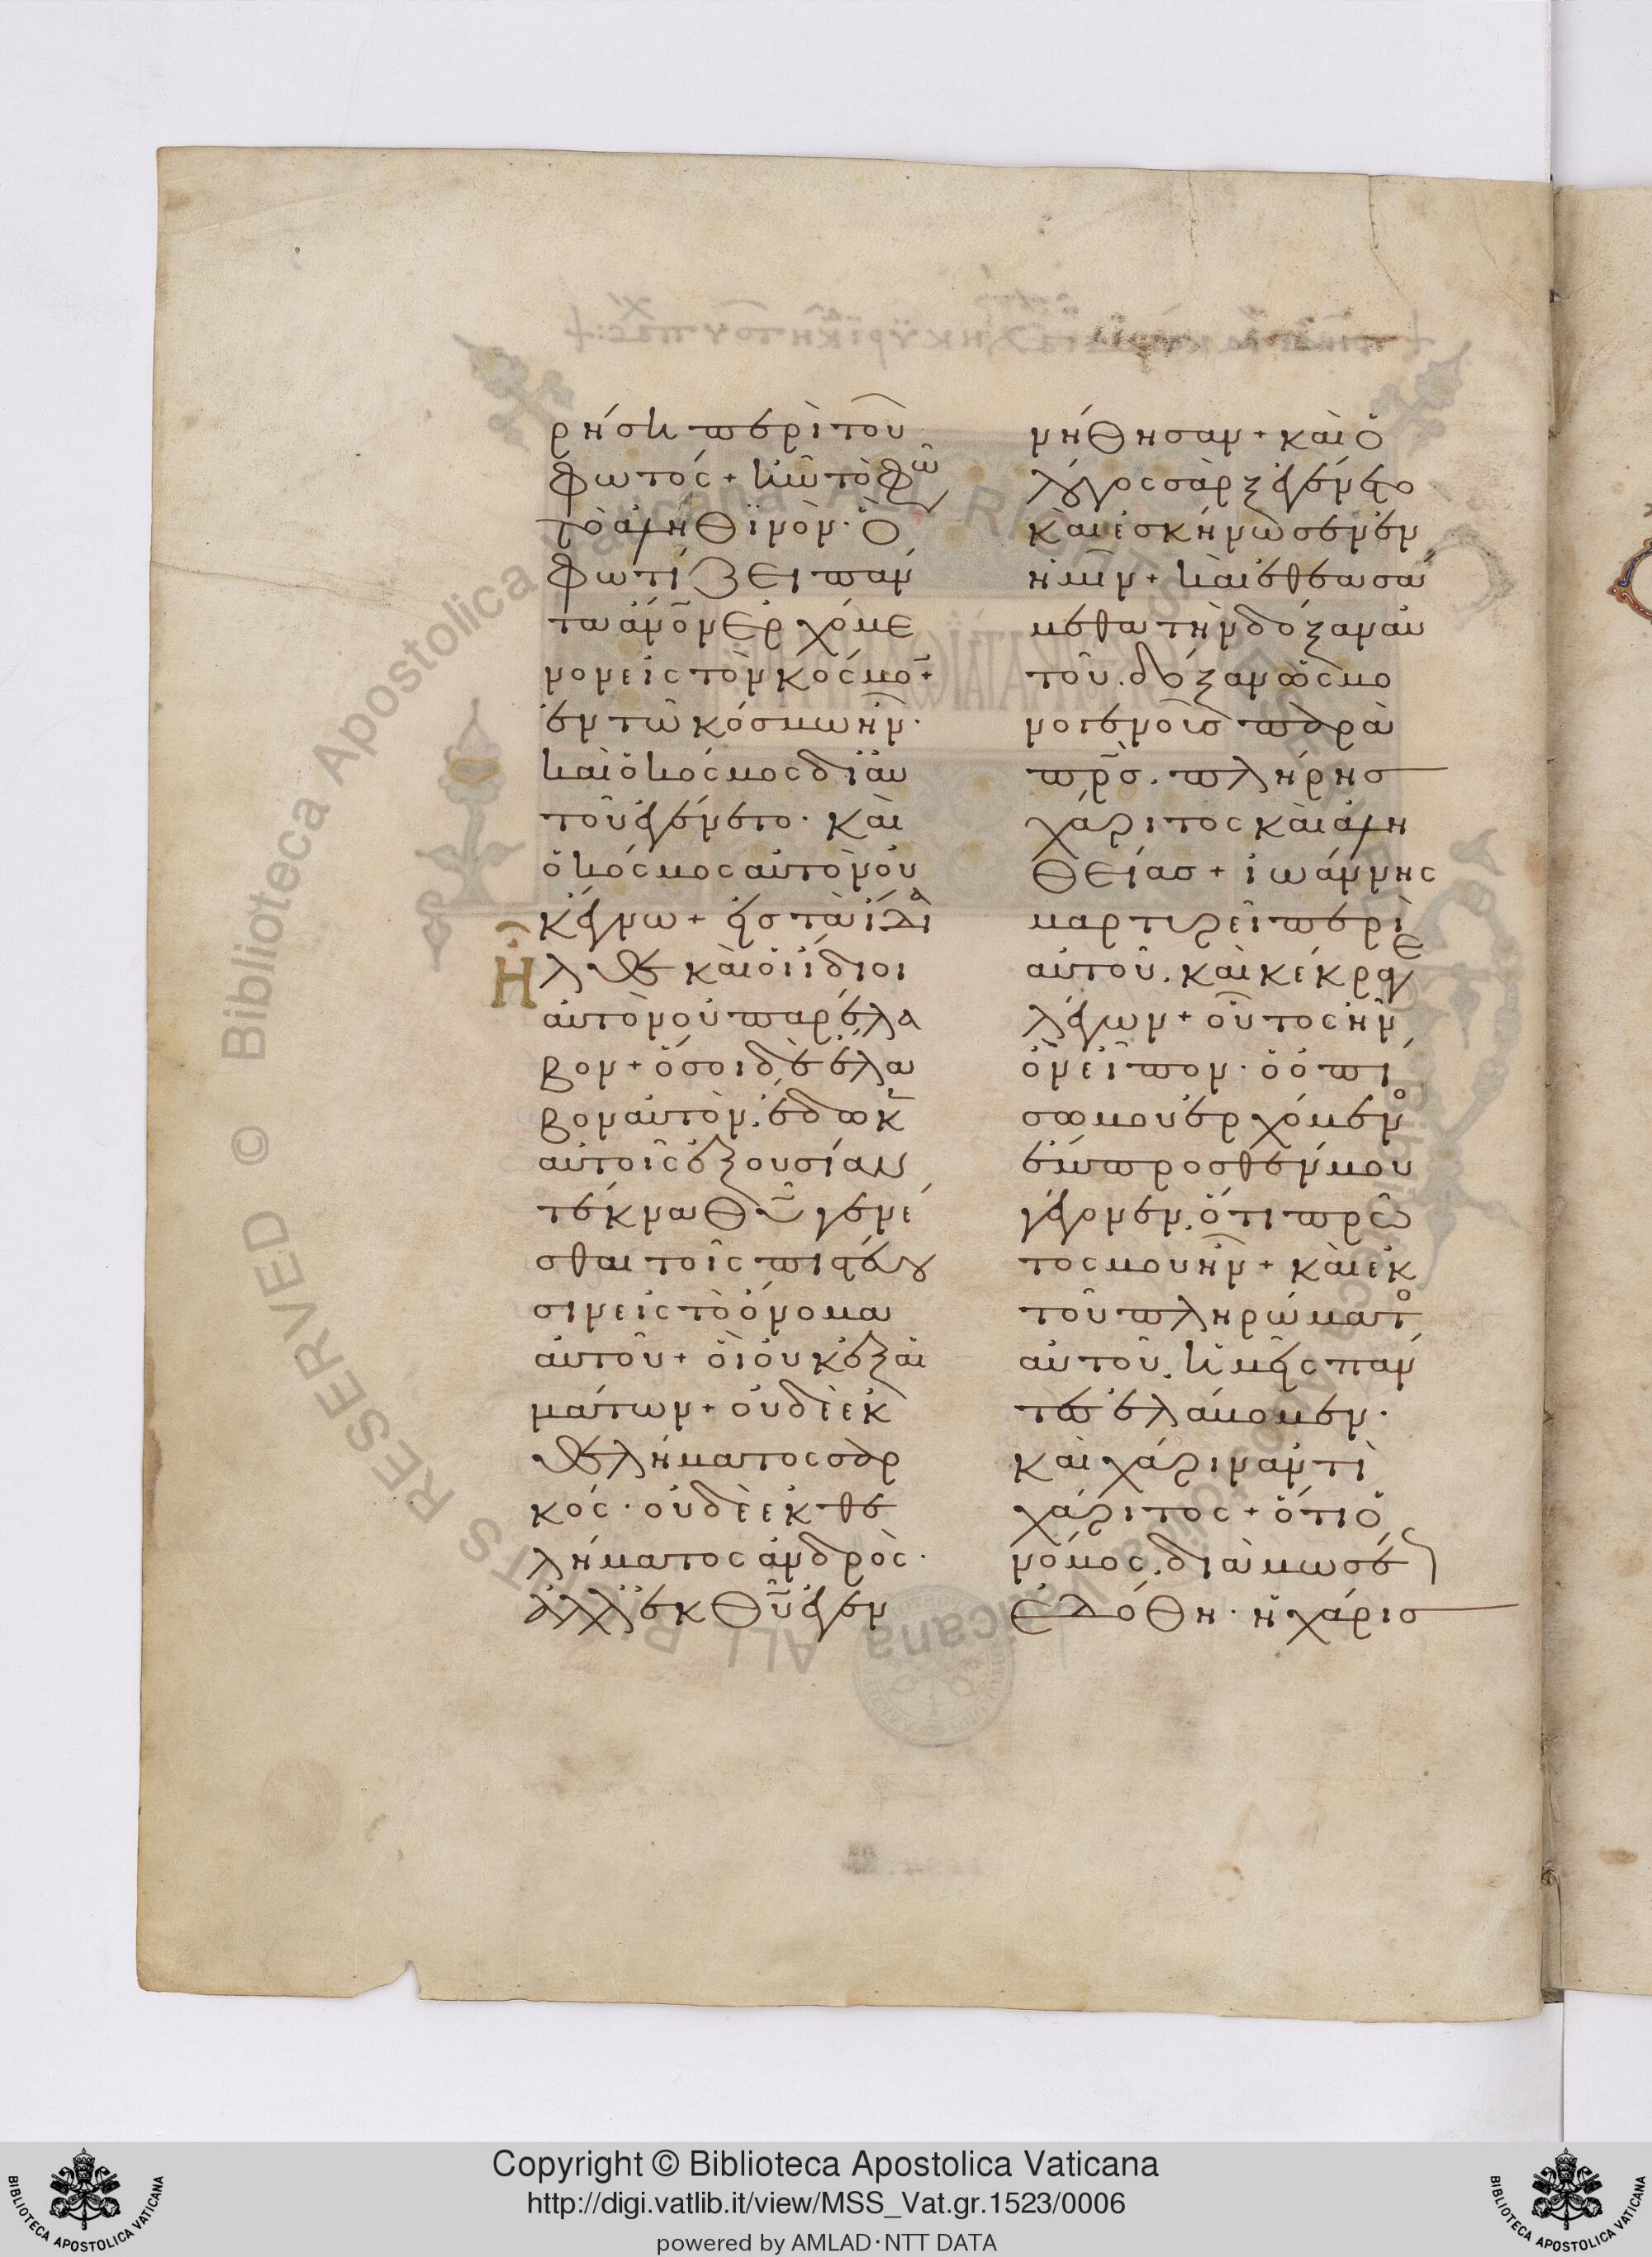 ρήσῃ περὶ τοῦ
φωτός + ἦν τὸ φῶ
τὸ ἀληθϊνὸν· ὃ
φωτίζει πάν
τα ἄνο̅ν ἐρχόμε
νον εἰς τὸν κόσμο̅ +
ἐν τῶ κόσμω ἦν·
καὶ ὁ κόσμος δϊ αὐ
τοῦ ἐγένετο· καὶ
ὁ κόσμος αὐτὸν οὐκ
ἔγνω + εἰς τὰ ἴδια
Ἦλθε καὶ οἱ ἴδιοι
αὐτὸν οὐ παρέλα
βον + ὅσοι δὲ ἔλα
βον αὐτὸν, ἔδωκ̅
αὐτοῖς ἐξουσίαν
τέκνα θυ̅ γενέ
σθαι τοῖς πιστεύου
σιν εἰς τὸ ὄνομα
αὐτοῦ + οἳ οὐκ ἐξ αἱ
μάτων + οὐδὲ ἐκ
θελήματος σαρ
κός· οὐδὲ ἐκ θε
λήματος ἀνδρὸς·
ἀλλ̓ ἐκ θυ̅ ἐγεν
νήθησαν + καὶ ὁ
λόγος σὰρξ ἐγένετο
καὶ ἐσκήνωσεν ἐν
ἡμῖν + καὶ ἐθεασά
μεθα τὴν δόξαν αὐ
τοῦ. δόξαν ὡς μο
νογενοῦς παρὰ
πρ̅σ. πλήρης
χάριτος καὶ ἀλη
θείας + ἰωάννης
μαρτυρεῖ περὶ
αὐτοῦ. καὶ κέκραγε
λέγων + οὗτος ἦν
ὃν εἶπον· ὁ ὀπί
σω μου ἐρχόμενο
ἔμπροσθέν μου
γέγονεν. ὅτι πρῶ
τος μου ἦν + καὶ ἐκ
τοῦ πληρώματο
αὐτοῦ. ἡμεῖς πάν
τες ἐλάβομεν.
καὶ χάριν ἀντὶ
χάριτος + ὅτι ὁ
νόμος, διὰ μωσέως
ἐδόθη· ἡ χάρις
Copyright © Biblioteca Apostolica Vaticana
http://digi.vatlib.it/view/MSS_Vat.gr.1523/0006
powered by AMLAD·NTT DATA